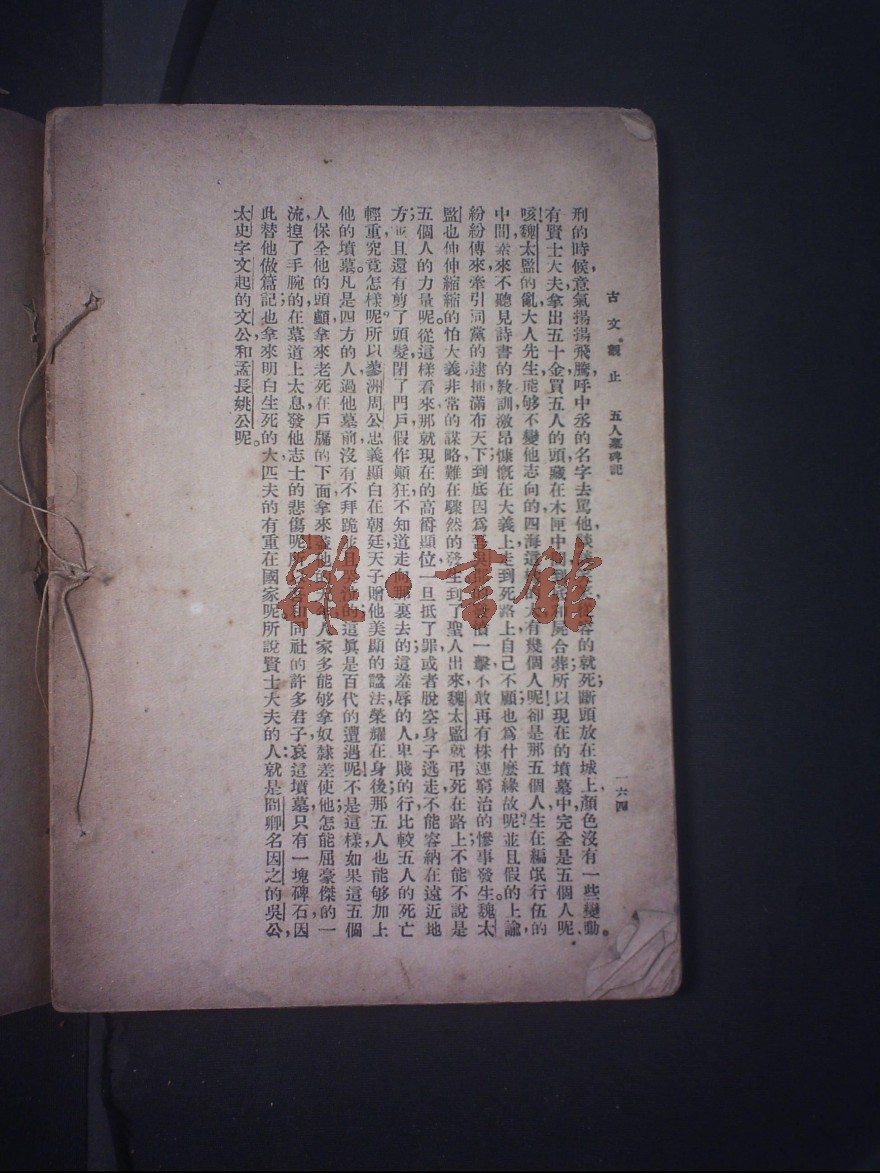 古文觀止 五人墓碑記 一六四
刑的時候，意氣揚揚飛騰，呼中丞的名字去罵他，的就死；斷頭放在城上，顏色沒有一些變動。
有賢士大夫拿出五十金買五人的頭藏在木匣中，屍合葬，所以現在的墳墓中完全是五個人呢。
咳！魏太監的亂，大人先生，能够不變他志向的，四海這大有幾個人呢？卻是那五個人，生在編氓行伍的
中間，素來不聽見詩書的教訓，激昂慷慨在大義上，走到死路上自己不顧，也爲什麽緣故呢？並且假的上諭，
紛紛傳來，牽引同黨的逮捕，滿布天下；到底因爲吾吳一擊，不敢再有株連窮治的慘事發生。魏太
監也伸伸縮縮的怕大義，非常的謀略難在驟然的發生，到了聖人出來，魏太監就弔死在路上，不能不說是
五個人的力量呢。從這樣看來，那就現在的高爵顯位，一旦抵了罪，或者脫空身子逃走，不能容納在遠近地
方；並且還有剪了頭髮，閉了門戶，假作顚狂，不知道走向那裏去的，這羞辱的人，卑賤的行，比較五人的死亡，
輕重究竟怎樣呢？所以蓼洲周公，忠義顯白在朝廷，天子贈他美顯的諡法，榮耀在身後；那五人也能够加上
他的墳墓。凡是四方的人，過他墓前，沒有不拜跪並且的，這眞是百代的遭遇呢！不是這樣，如果這五個
人保全他的頭顱，拿來老死在戶牖的下面，拿來人家多能够拿奴隸差使他；怎能屈豪傑的一
流，揘了手腕的在墓道上太息，發他志士的悲傷呢！同社的許多君子，哀這墳墓，只有一塊碑石，因
此替他做篇記；也拿來明白生死的大，匹夫的有重在國家呢。所說賢士大夫的人：就是冏卿名因之的吳公，
太史字文起的文公，和孟長姚公呢。